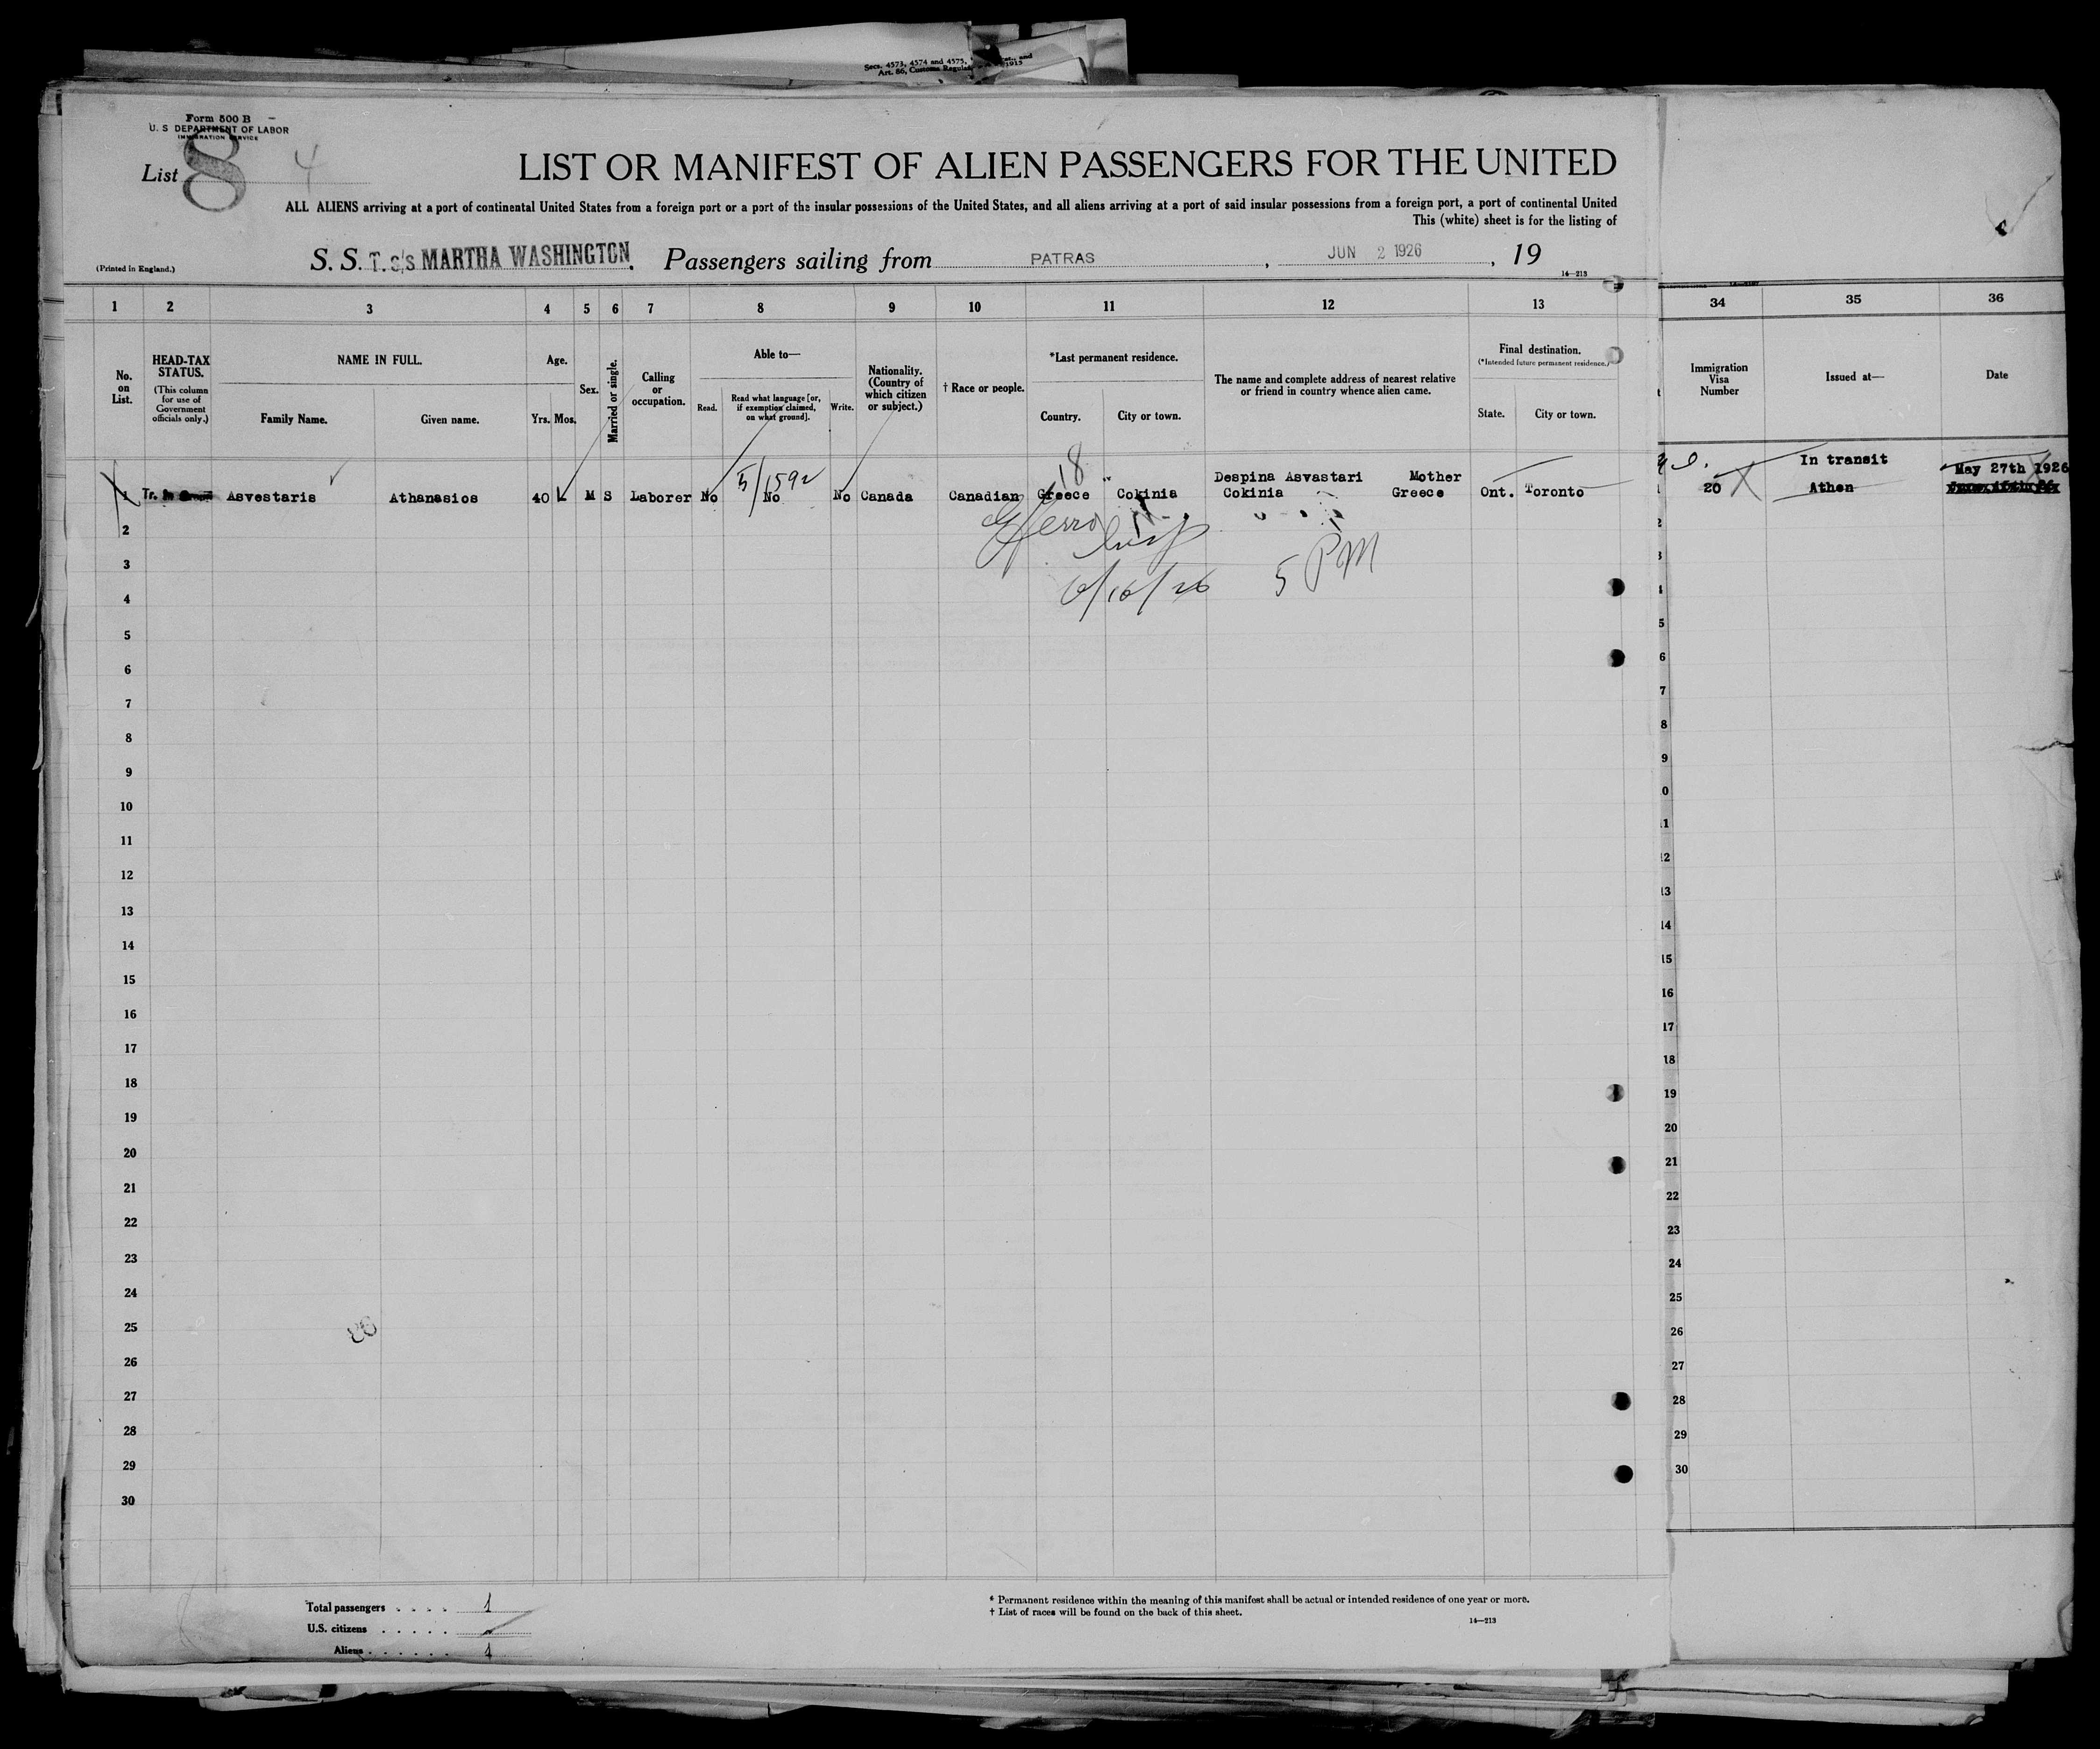 Secs. 4573, 4574 and 4575,
Art. 86, Customs 1915
Form 500 B
U. S DEPARTMENT OF LABOR
IMMIGRATION SERVICE
List 8 4
LIST OR MANIFEST OF ALIEN PASSENGERS FOR THE UNITED
ALL ALIENS arriving at a port of continental United States from a foreign port or a port of the insular possessions of the United States, and all aliens arriving at a port of said insular possessions from a foreign port, a port of continental United
This (white) sheet is for the listing of
(Printed in England.)
S. S. T. s/s MARTHA WASHINGTON. Passengers sailing from PATRAS, JUN 2 1926, 19
14—213
1 2 3 4 5 6 7 8 9 10 11 12 13 34 35 36
No. on List.
HEAD-TAX STATUS.
(This column for use of Government officials only.)
NAME IN FULL.
Family Name. Given name.
Age.
Yrs. Mos.
Sex.
Married or single.
Calling or occupation.
Able to—
Read. Read what language [or, if exemption claimed, on what ground]. Write.
Nationality. (Country of which citizen or subject.)
† Race or people.
*Last permanent residence.
Country. City or town.
The name and complete address of nearest relative or friend in country whence alien came.
Final destination.
(*Intended future permanent residence.)
State. City or town.
Immigration Visa Number
Issued at—
Date
18
5/1592
Despina Asvastari Mother In transit May 27th 1926
1 Tr. Asvestaris Athanasios 40 M S Laborer No No No Canada Canadian Greece Cokinia Cokinia Greece Ont. Toronto 20 Athen
Insp
6/16/26 5 PM
2
3
4
5
6
7
8
9
10
11
12
13
14
15
16
17
18
19
20
21
22
23
24
25
26
27
28
29
30
2
3
4
5
6
7
8
9
10
11
12
13
14
15
16
17
18
19
20
21
22
23
24
25
26
27
28
29
30
Total passengers . . . . 1
U.S. citizens . . . . .
Aliens . . . . . . 1
* Permanent residence within the meaning of this manifest shall be actual or intended residence of one year or more.
† List of races will be found on the back of this sheet.
14—213